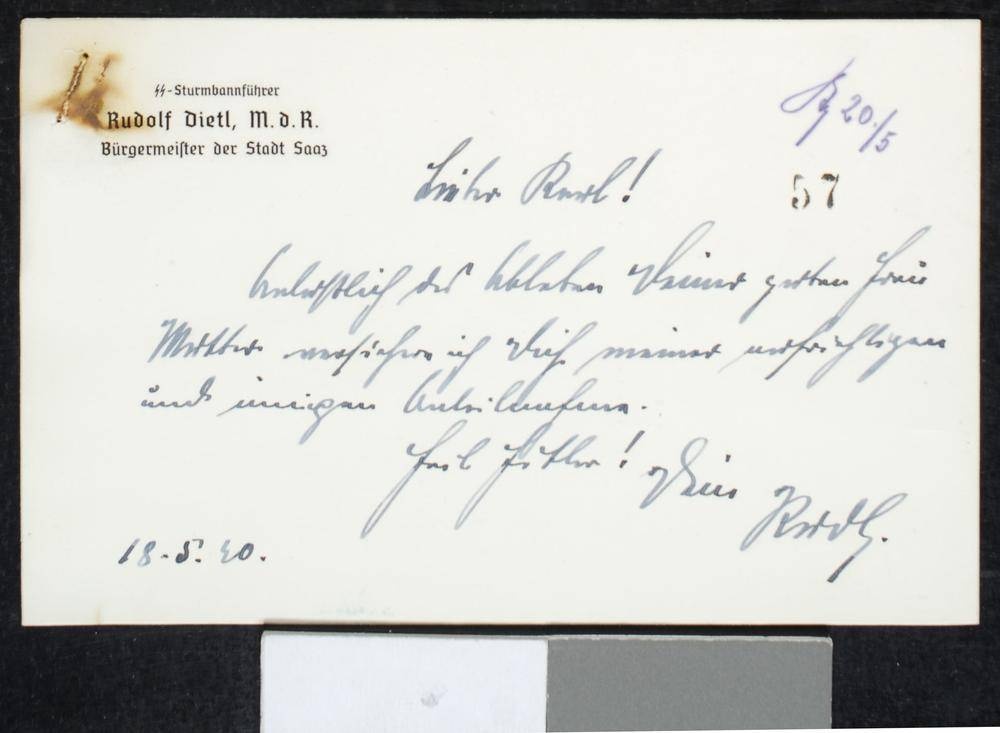 SS-Sturmbannführer
Rudolf Dietl, M.d.R.
Bürgermeister der Stadt Saaz
20/5
57
Lieber Karl!
Anlässlich des Ableben Deiner guten Frau
Mutter versichere ich Dich meiner aufrichtigen
und innigen Anteilnahme.
Heil Hitler! Dein
Rudl.
18.5.40.